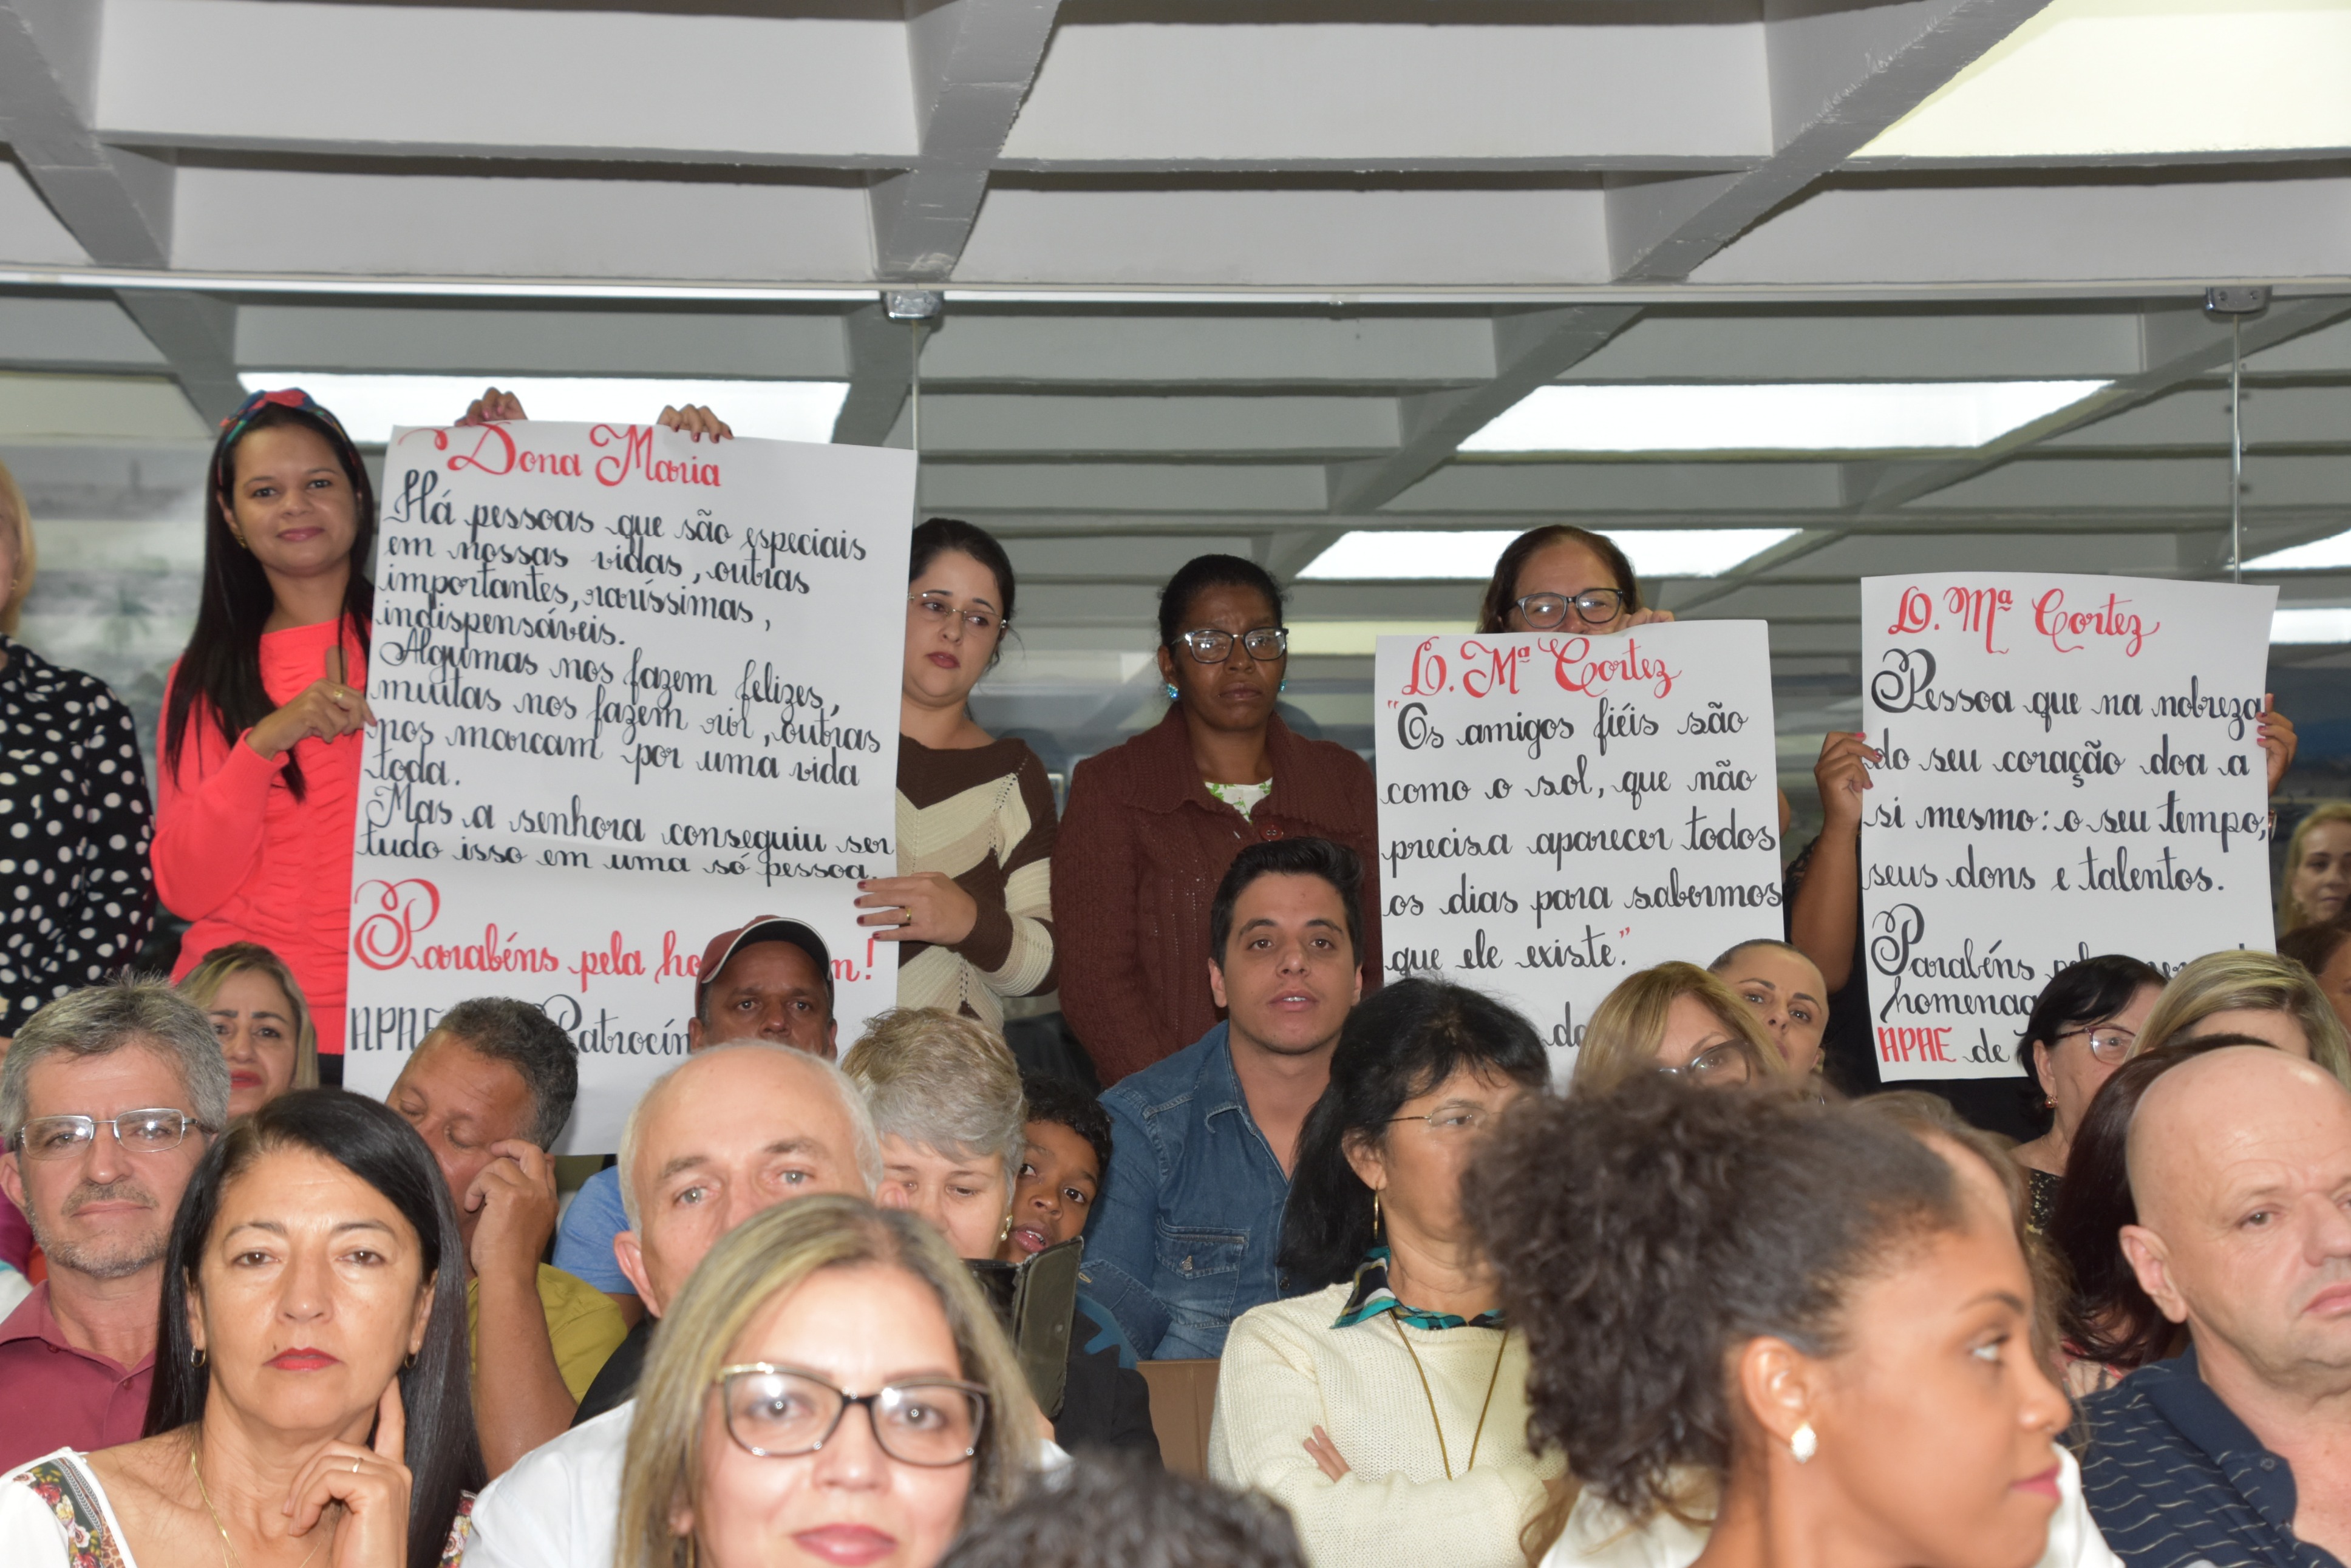 Dona Maria
Há pessoas que são especiais
em nossas vidas, outras
importantes, raríssimas,
indispensáveis.
Algumas nos fazem felizes,
muitas nos fazem rir, outras
nos marcam por uma vida
toda.
Mas a senhora conseguiu ser
tudo isso em uma só pessoa.
Parabéns pela
D. Mª Cortez
"Os amigos fiéis são
como o sol, que não
precisa aparecer todos
os dias para sabermos
que ele existe."
D. Mª Cortez
Pessoa que na nobreza
do seu coração doa a
si mesmo: o seu tempo,
seus dons e talentos.
Parabéns
APAE de